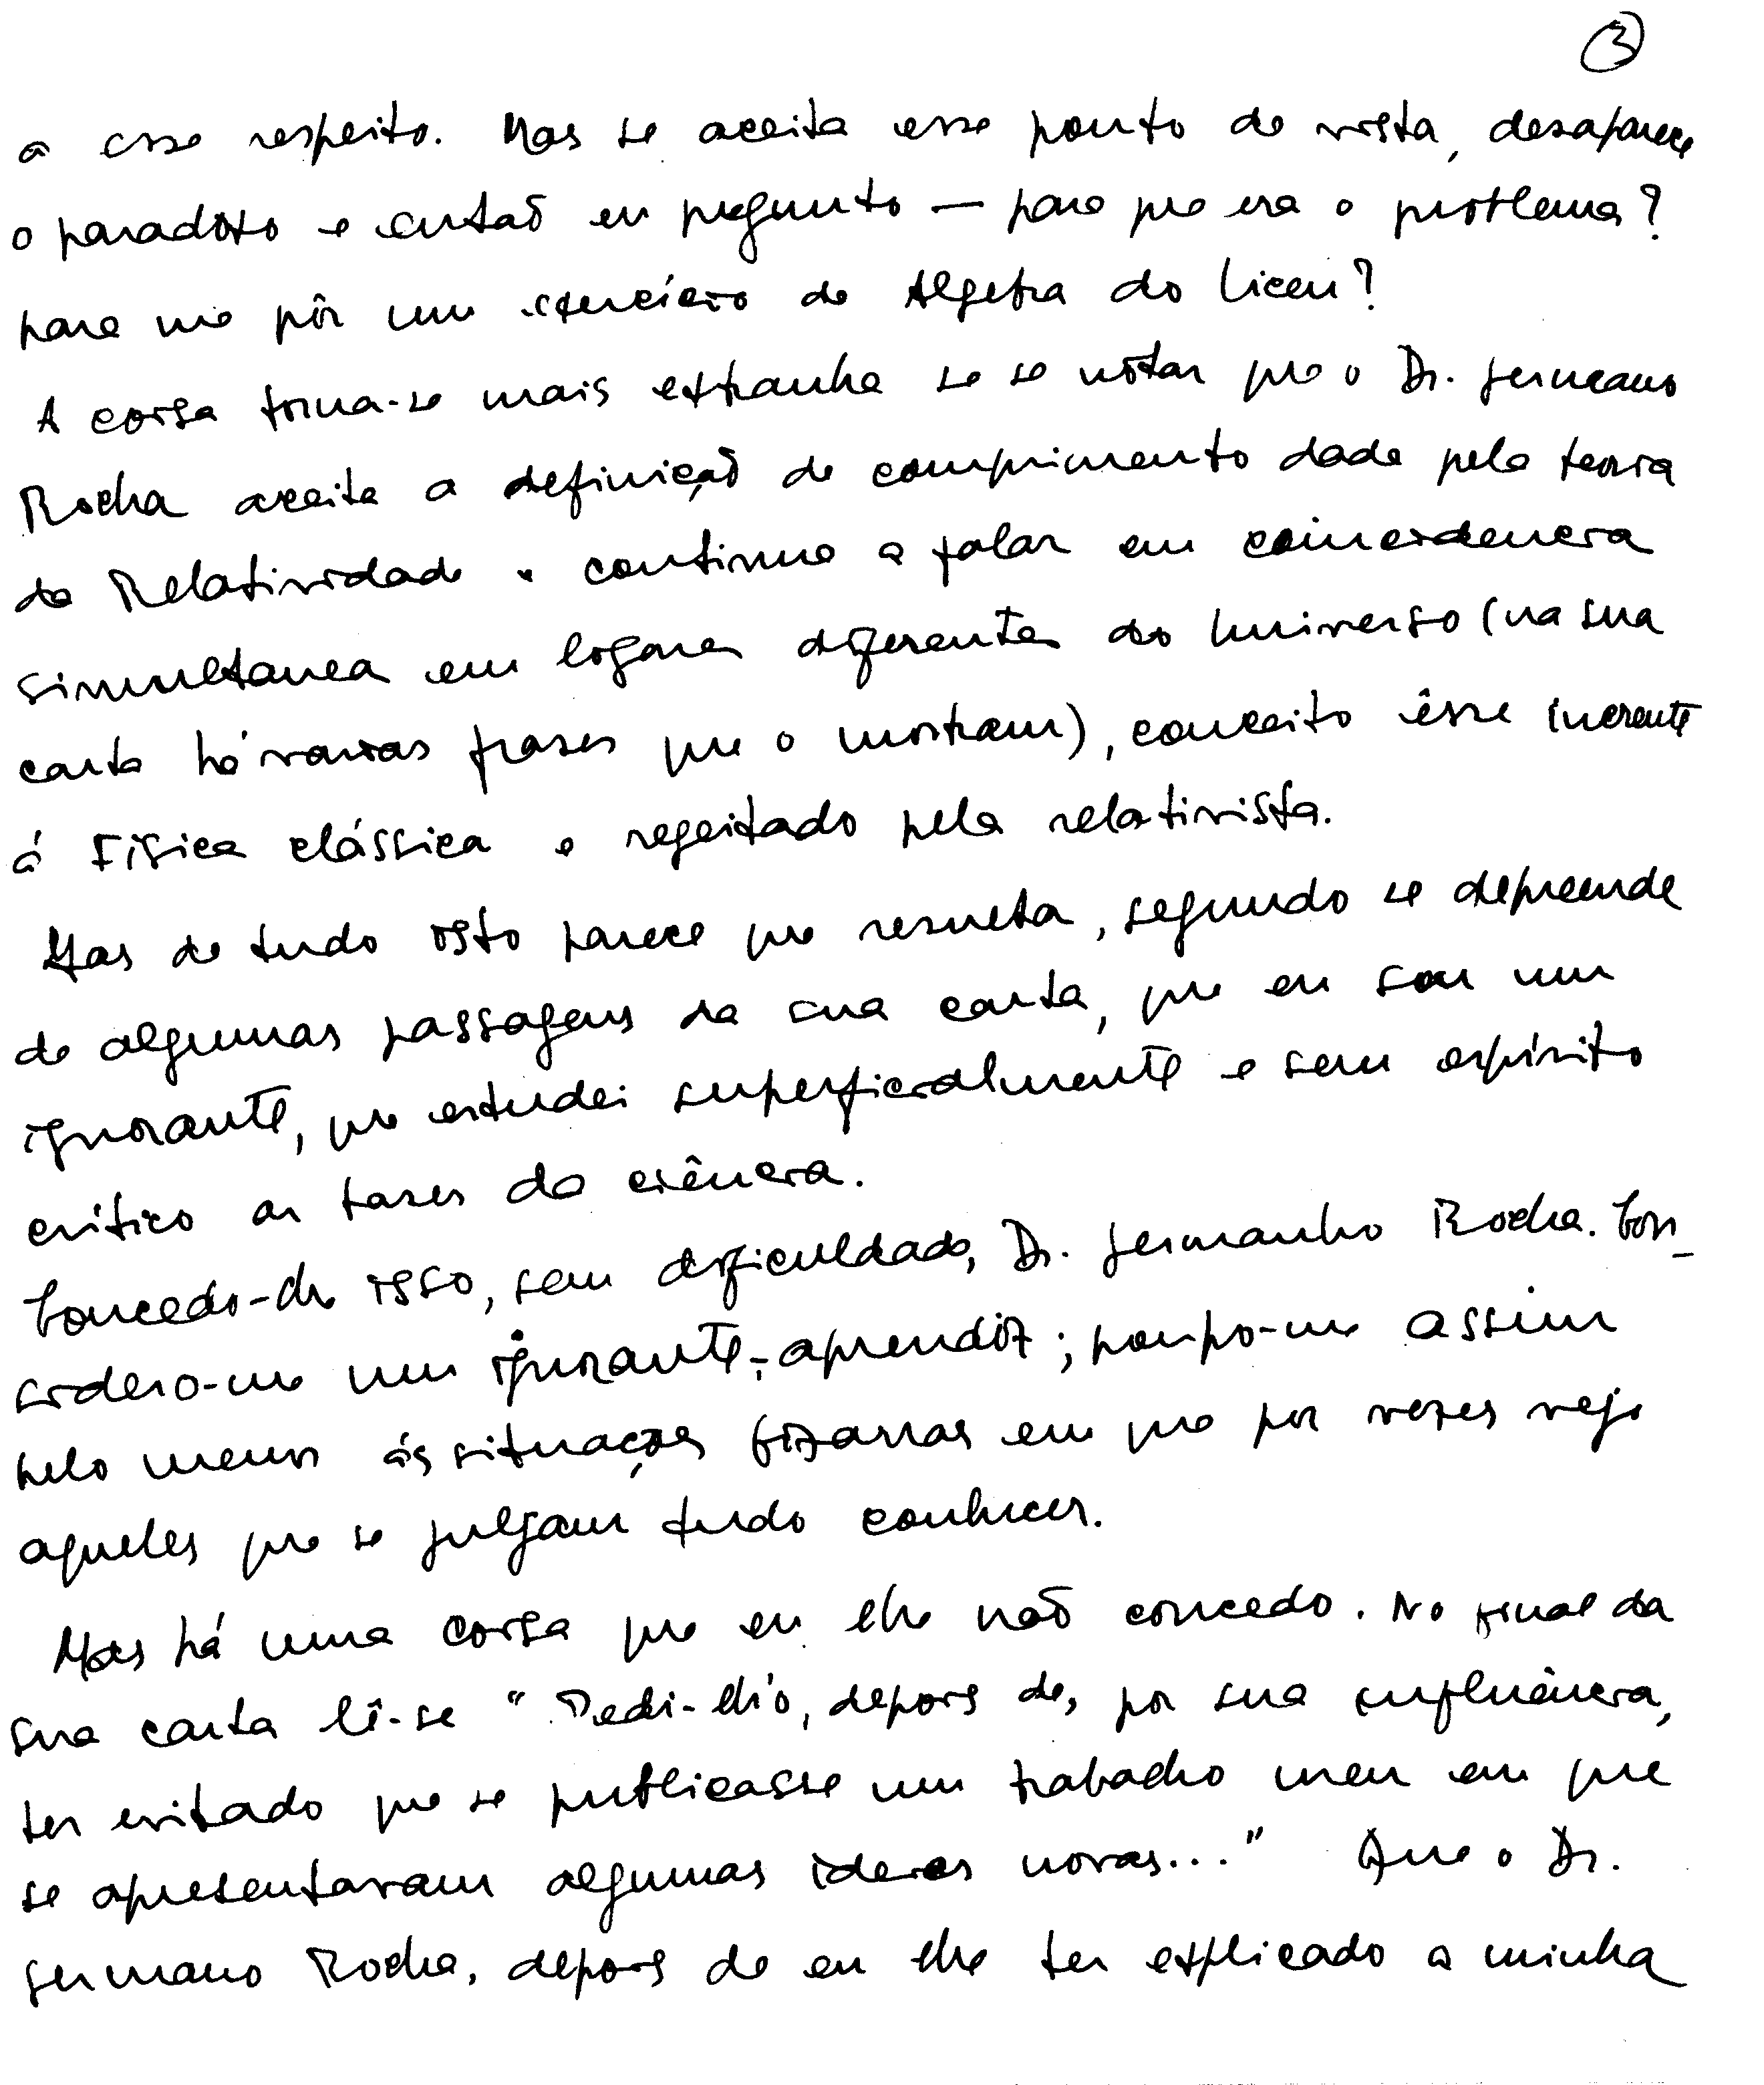 3
a esse respeito. Mas se aceita esse ponto de vista, desaparece
o paradoxo e então eu pregunto — para que era o problema?
para me pôr um exercício de Algebra do Liceu?
A coisa torna-se mais extranha se se notar que o Dr. Germano
Rocha aceita a definição de comprimento dada pela teoria
da Relatividade e continua a falar em coincidencia
simultanea em logares diferentes do Universo (na sua
carta há varias frases que o mostram), conceito êsse inerente
á Física clássica e regeitado pela relativista.
Mas de tudo isto parece que resulta, segundo se depreende
de algumas passagens da sua carta, que eu sou um
ignorante, que estudei superficialmente e sem espírito
crítico as bases da ciência.
Concedo-lhe isso, sem dificuldade, Dr. Germanho Rocha. Con-
sidero-me um ignorante-aprendiz; poupo-me assim
pelo menos ás situações bizarras em que por vezes vejo
aqueles que se julgam tudo conhecer.
Mas há uma coisa que eu lhe não concedo. No final da
sua carta lê-se "Pedi-lh'o, depois de, por sua influência,
ter evitado que se publicasse um trabalho meu em que
se apresentavam algumas ideias novas..." Que o Dr.
Germano Rocha, depois de eu lhe ter explicado a minha